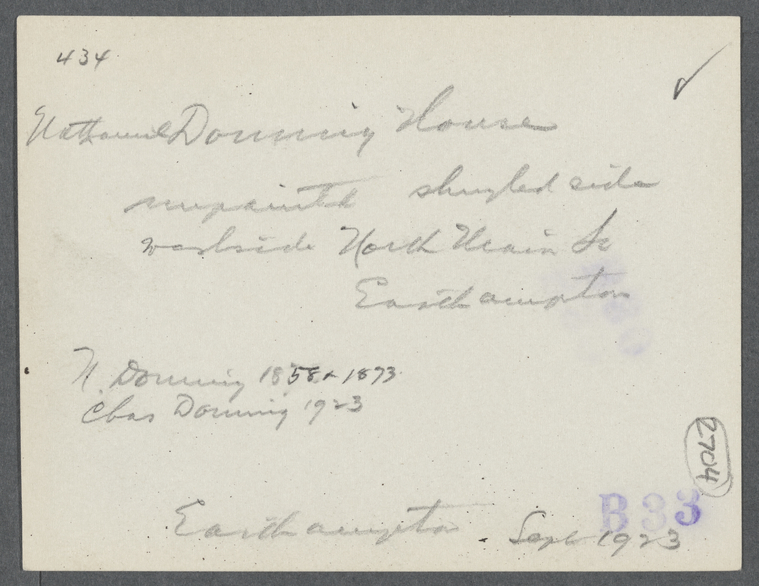 434
Nathaniel Dominy House
unpainted shingled side
westside North Main St
Easthampton
N. Dominy 1858 & 1873
Chas Dominy 1923
2704
B33
Easthampton . Sept 1923